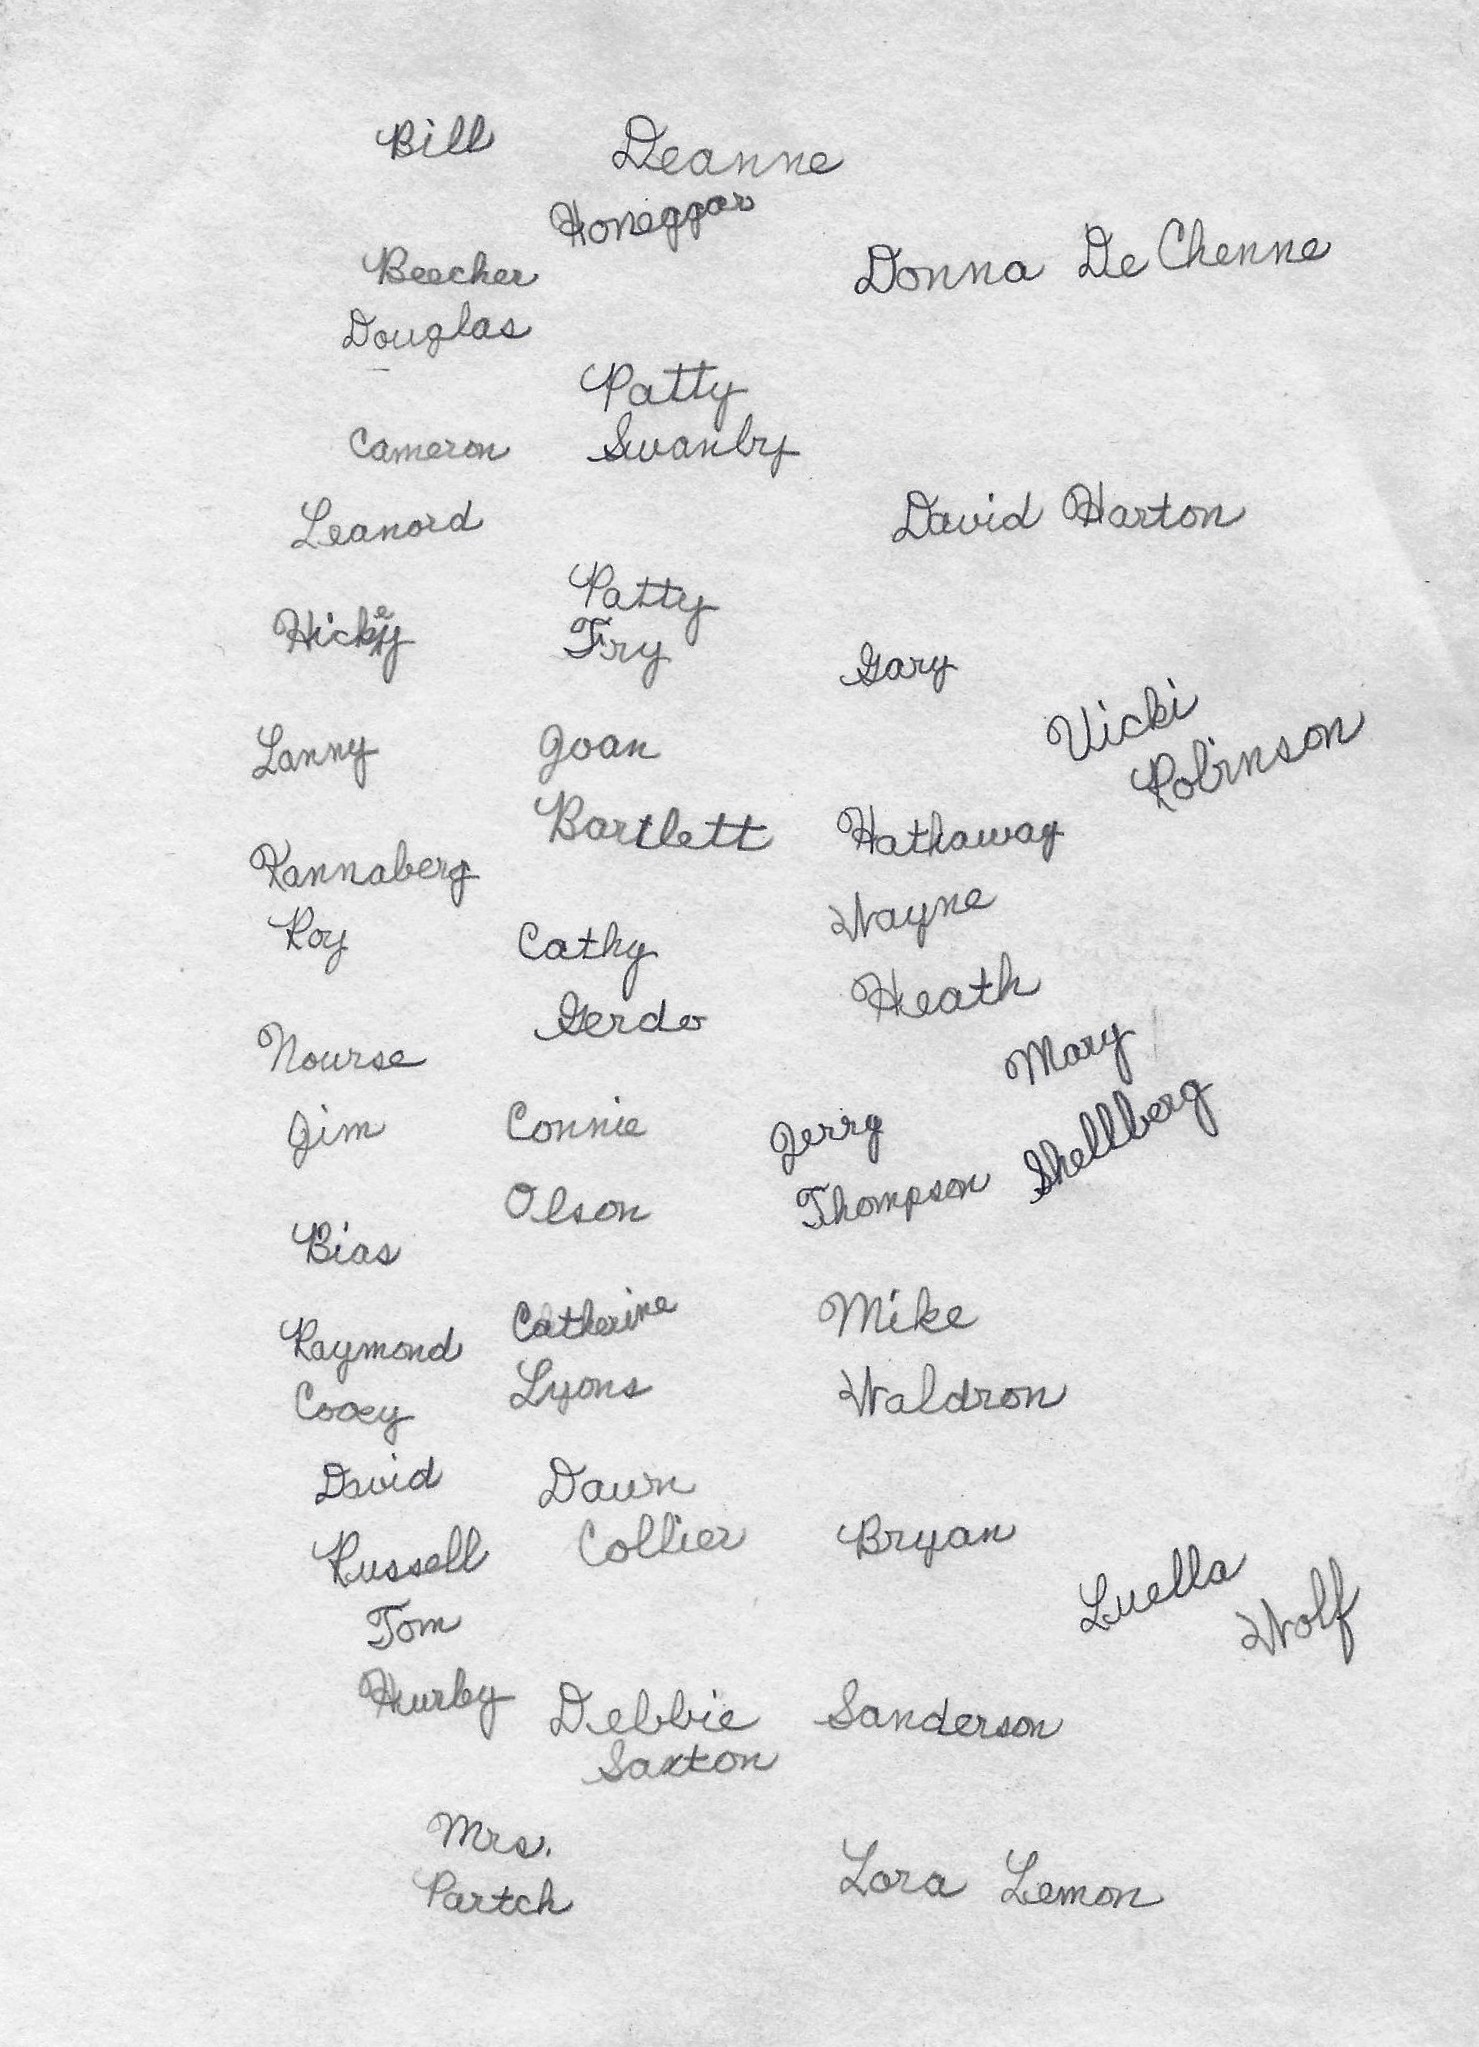 Bill
Beecher
Douglas
Cameron
Leanord
Hickey
Lanny
Kannaberg
Roy
Nourse
Jim
Bias
Raymond
Cooey
David
Russell
Tom
Hurley
Mrs.
Partch
Deanne
Honeggar
Patty
Swanby
Patty
Fry
Joan
Bartlett
Cathy
Gerdo
Connie
Olson
Catherine
Lyons
Dawn
Collier
Debbie
Saxton
Donna DeChenne
David Harton
Gary
Hathaway
Wayne
Heath
Jerry
Thompson
Mike
Waldron
Bryan
Sanderson
Lora Lemon
Vicki
Robinson
Mary
Shellberg
Luella
Wolf